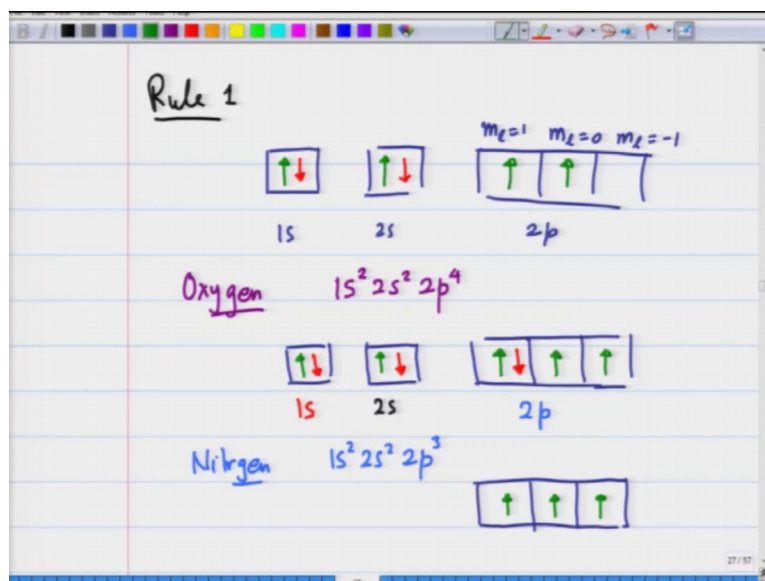 Rule 1
mₗ=1 mₗ=0 mₗ=-1
↑↓ ↑↓ ↑ ↑
1s 2s 2p
Oxygen 1s² 2s² 2p⁴
↑↓ ↑↓ ↑↓ ↑ ↑
1s 2s 2p
Nitrgen 1s² 2s² 2p³
↑ ↑ ↑
27/57